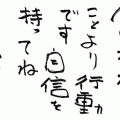 ことより行動
です自信を
持ってね